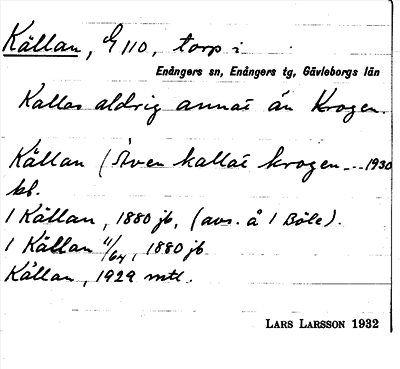 Källan, G 110, torp i
Enångers sn, Enångers tg, Gävleborgs län
Kallas aldrig annat än Krogen.
Källan (Även kallat krogen 1930
kb.
1 Källan, 1880 jb, (avs. å 1 Böle).
1 Källan 11/64, 1880 jb
Källan, 1929 mtl.
LARS LARSSON 1932